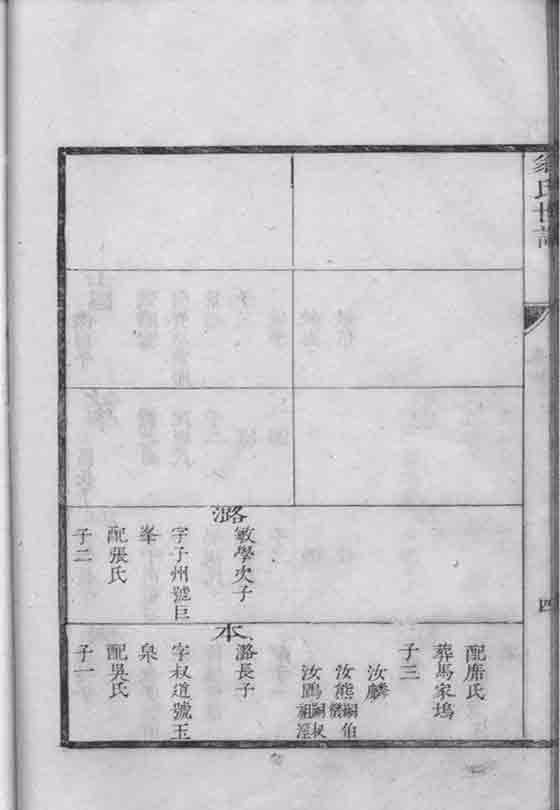 氏世譜
四
潞
敏學次子
字子州號巨
峯
配張氏
子二
配席氏
葬馬家塢
子三
汝麟
汝熊嗣伯
汝鴎嗣叔
祖涇
本
潞長子
字叔道號玉
泉
配吳氏
子一